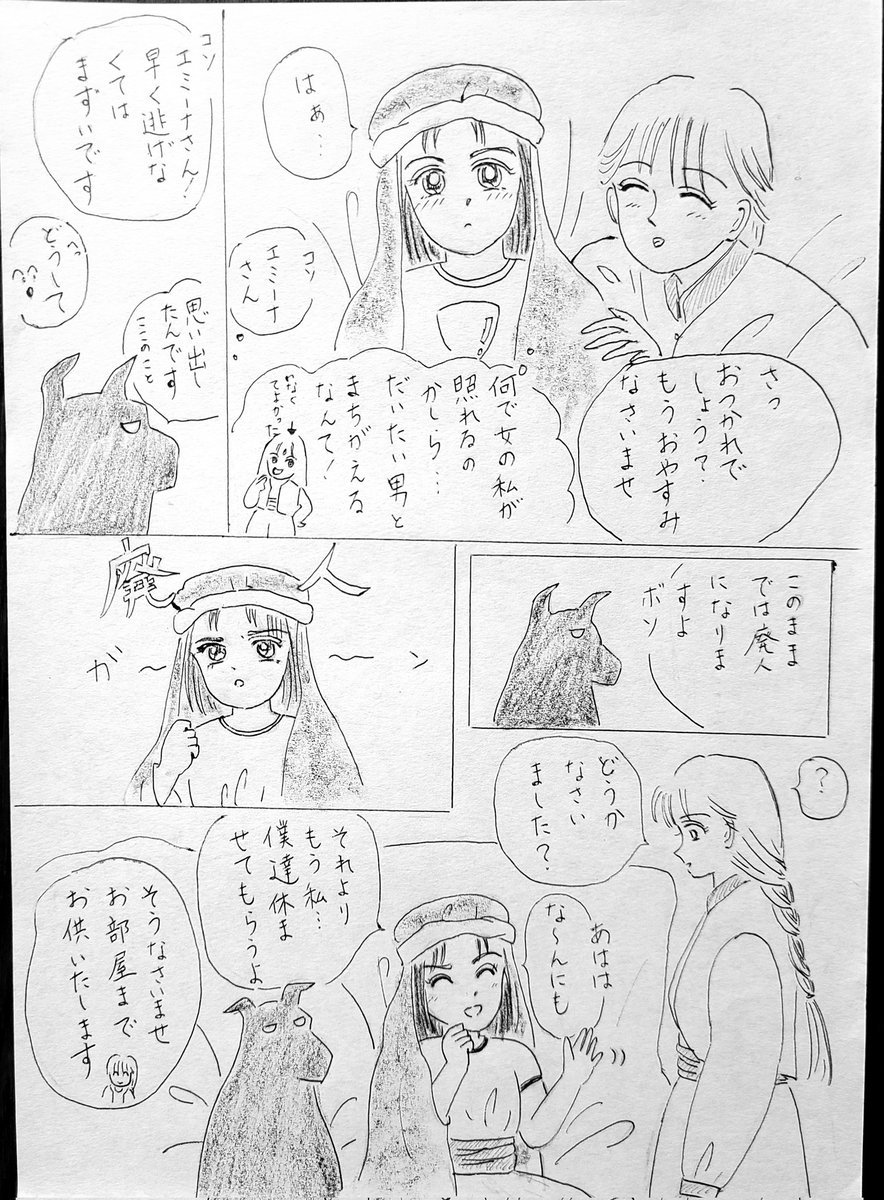 さっ
おつかれで
しょう?
もうおやすみ
なさいませ
はぁ…
何で女の私が
照れるの
かしら…
だいたい男と
まちがえる
なんて!
むねなくて
よかった
コソ
エミーナ
さん
コソ
エミーナさん!
早く逃げな
くては
まずいです
どうして
思い出し
たんです
ここのこと
このまま
では廃人
になりま
すよ
ボソ
廃人
が〜〜ン
?
どうか
なさい
ました?
あはは
な〜んにも
それより
もう私…
僕達休ま
せてもらうよ
そうなさいませ
お部屋まで
お供いたします